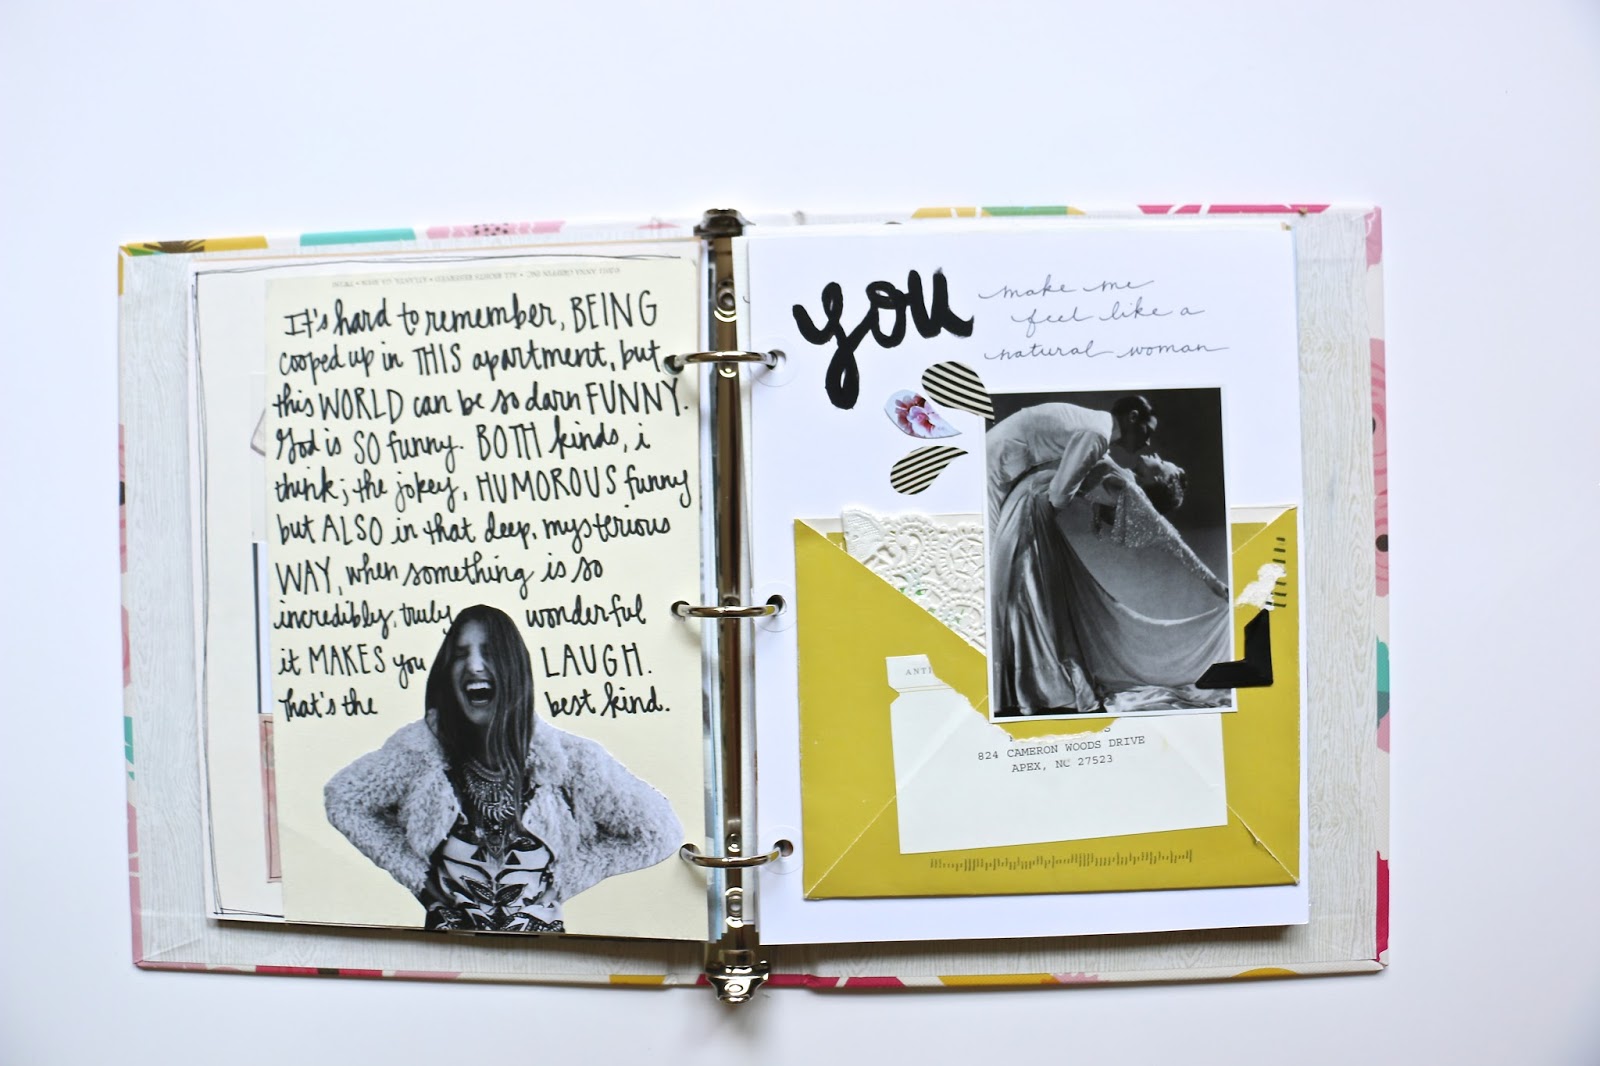 ©2011 ANNA GRIFFIN INC. • ALL RIGHTS RESERVED • ATLANTA, GA 30324
It's hard to remember, BEING
cooped up in THIS apartment, but
this WORLD can be so darn FUNNY.
God is SO funny. BOTH kinds, i
think; the jokey, HUMOROUS funny
but ALSO in that deep, mysterious
WAY, when something is so
incredibly, truly wonderful
it MAKES you LAUGH.
that's the best kind.
you make me
feel like a
natural woman
ANTI
824 CAMERON WOODS DRIVE
APEX, NC 27523